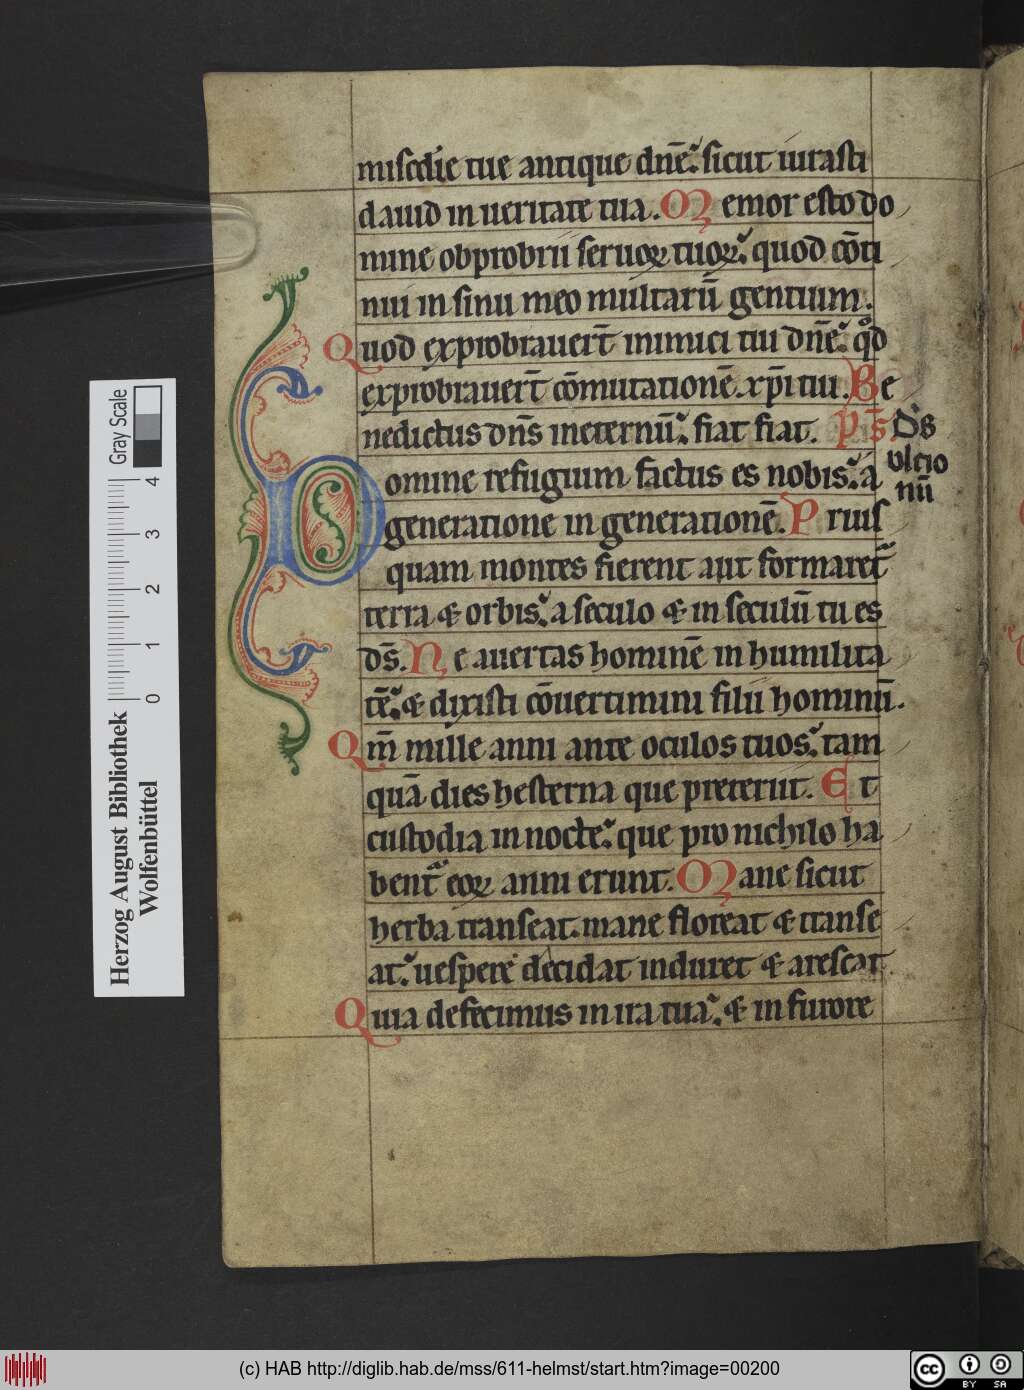 misc̄die tue antique dn̄e. sicut iurasti
dauid in ueritate tua. Memor esto do
mine obprobrii seruoꝝ tuoꝝ. quod cōti
nui in sinu meo multarū gentium.
Quod exprobrauert̄ inimici tui dn̄e. qd̊
exprobrauert̄ cōmutationē xp̄i tui. Be
nedictus dn̄s ineternū. fiat fiat. Ps̄.
Domine refugium factus es nobis. a
generatione in generationē. Prius
quam montes fierent aut formaret̄
terra & orbis. a seculo & in seculū tu es
ds̄. Ne auertas hominē in humilita
tē. & dixisti cōuertimini filii hominū.
Qm̄ mille anni ante oculos tuos. tam
quā dies hesterna que preteriit. Et
custodia in nocte. que pro nichilo ha
bent̄ eoꝝ anni erunt. Mane sicut
herba transeat. mane floreat & transe
at. uespere decidat induret & arescat
Quia defecimus in ira tua. & in furore
Ds̄
ultio
nū
Gray Scale
0 1 2 3 4
Herzog August Bibliothek
Wolfenbüttel
(c) HAB http://diglib.hab.de/mss/611-helmst/start.htm?image=00200
cc BY SA